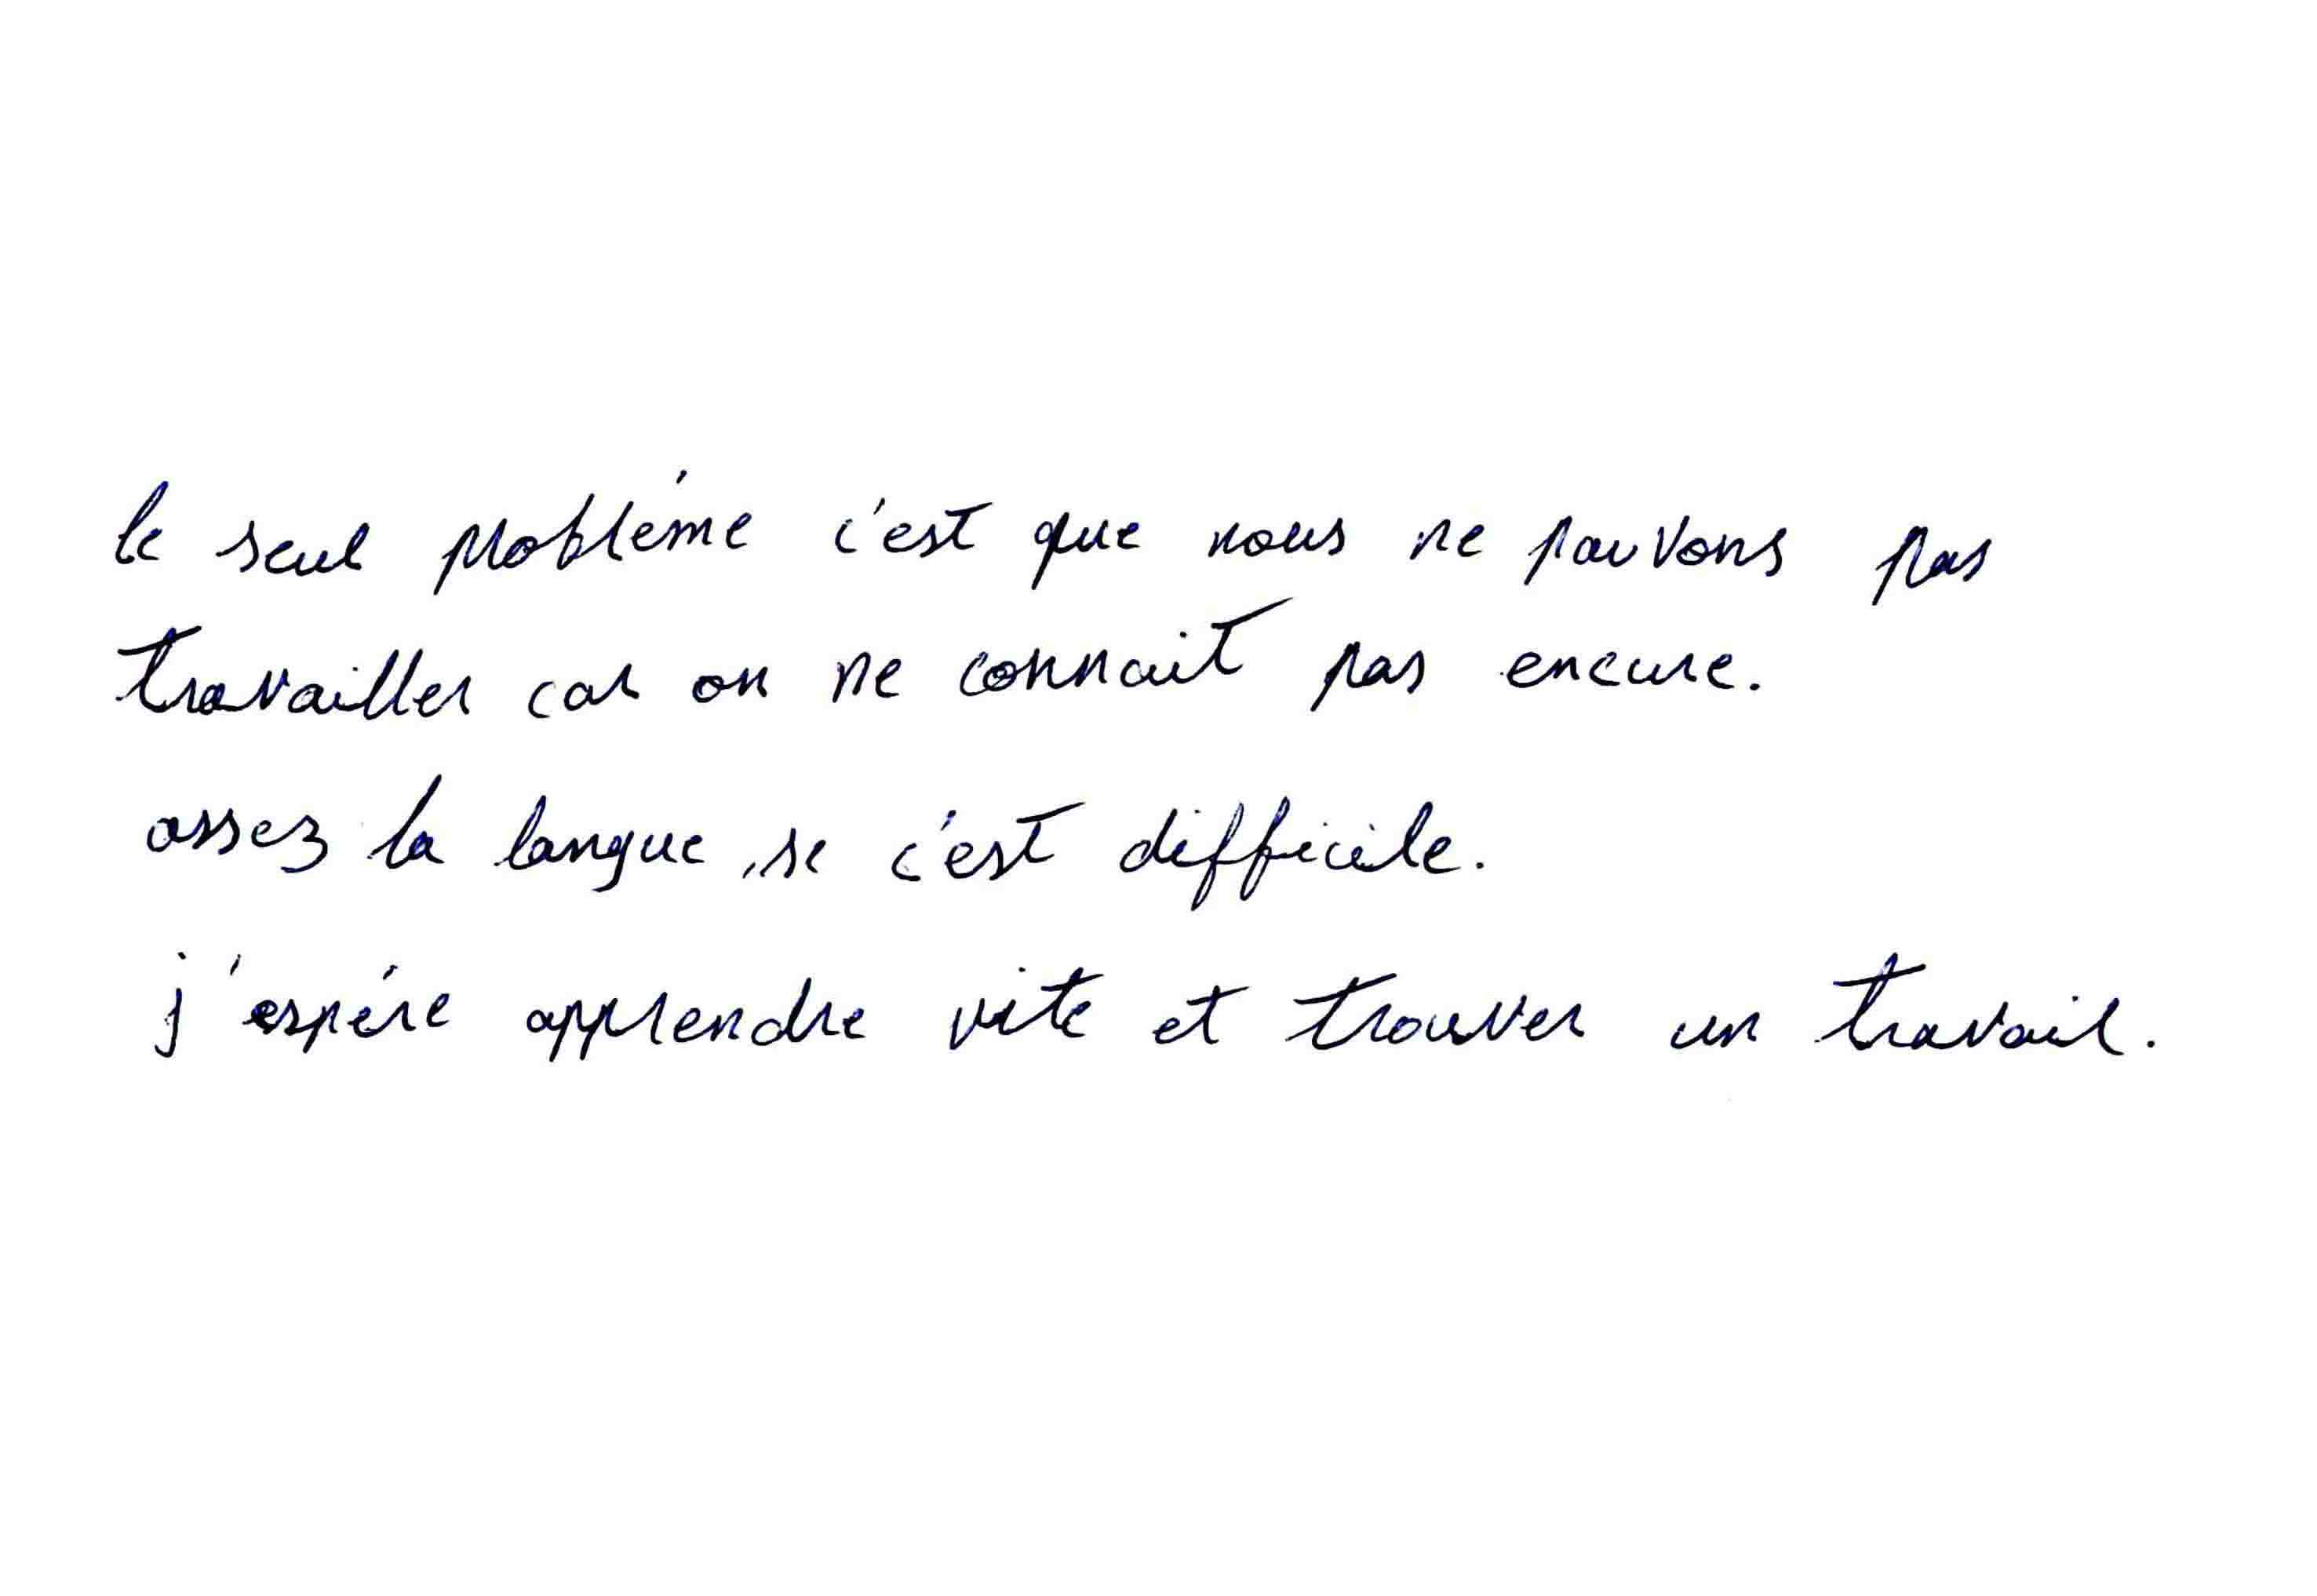 le seul probléme c'est que nous ne pouvons pas
travailler car on ne connait pas encore.
assez la langue, se c'est difficile.
j'espére apprendre vite et trouver un travail.